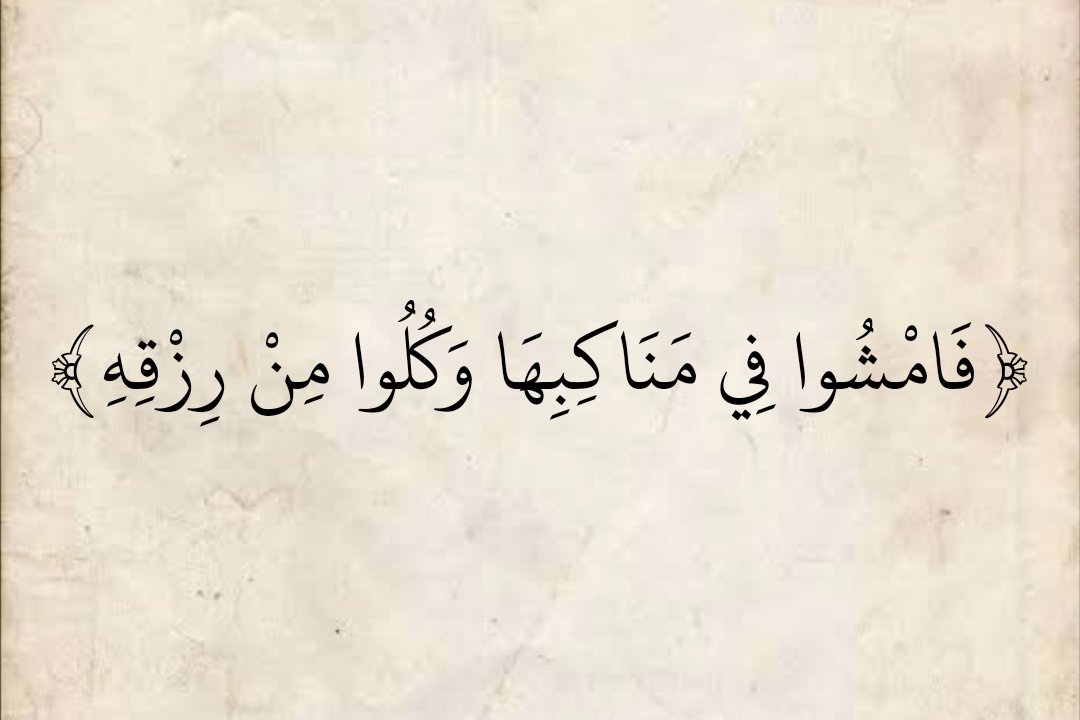 ﴿فَامْشُوا فِي مَنَاكِبِهَا وَكُلُوا مِنْ رِزْقِهِ﴾